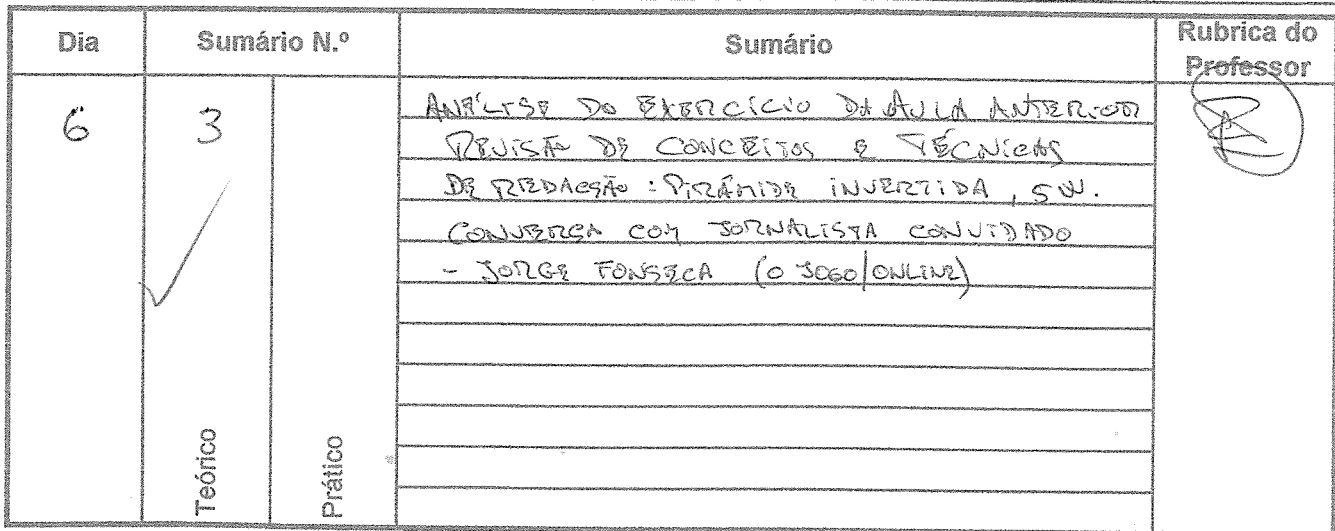 Dia Sumário N.º Sumário Rubrica do Professor
6 3 ANÁLISE DO EXERCÍCIO DA AULA ANTERIOR
REVISÃO DE CONCEITOS E TÉCNICAS
DE REDACÇÃO : PIRÂMIDE INVERTIDA , 5 W.
CONVERSA COM JORNALISTA CONVIDADO
- JORGE FONSECA (O JOGO/ONLINE)
Teórico Prático